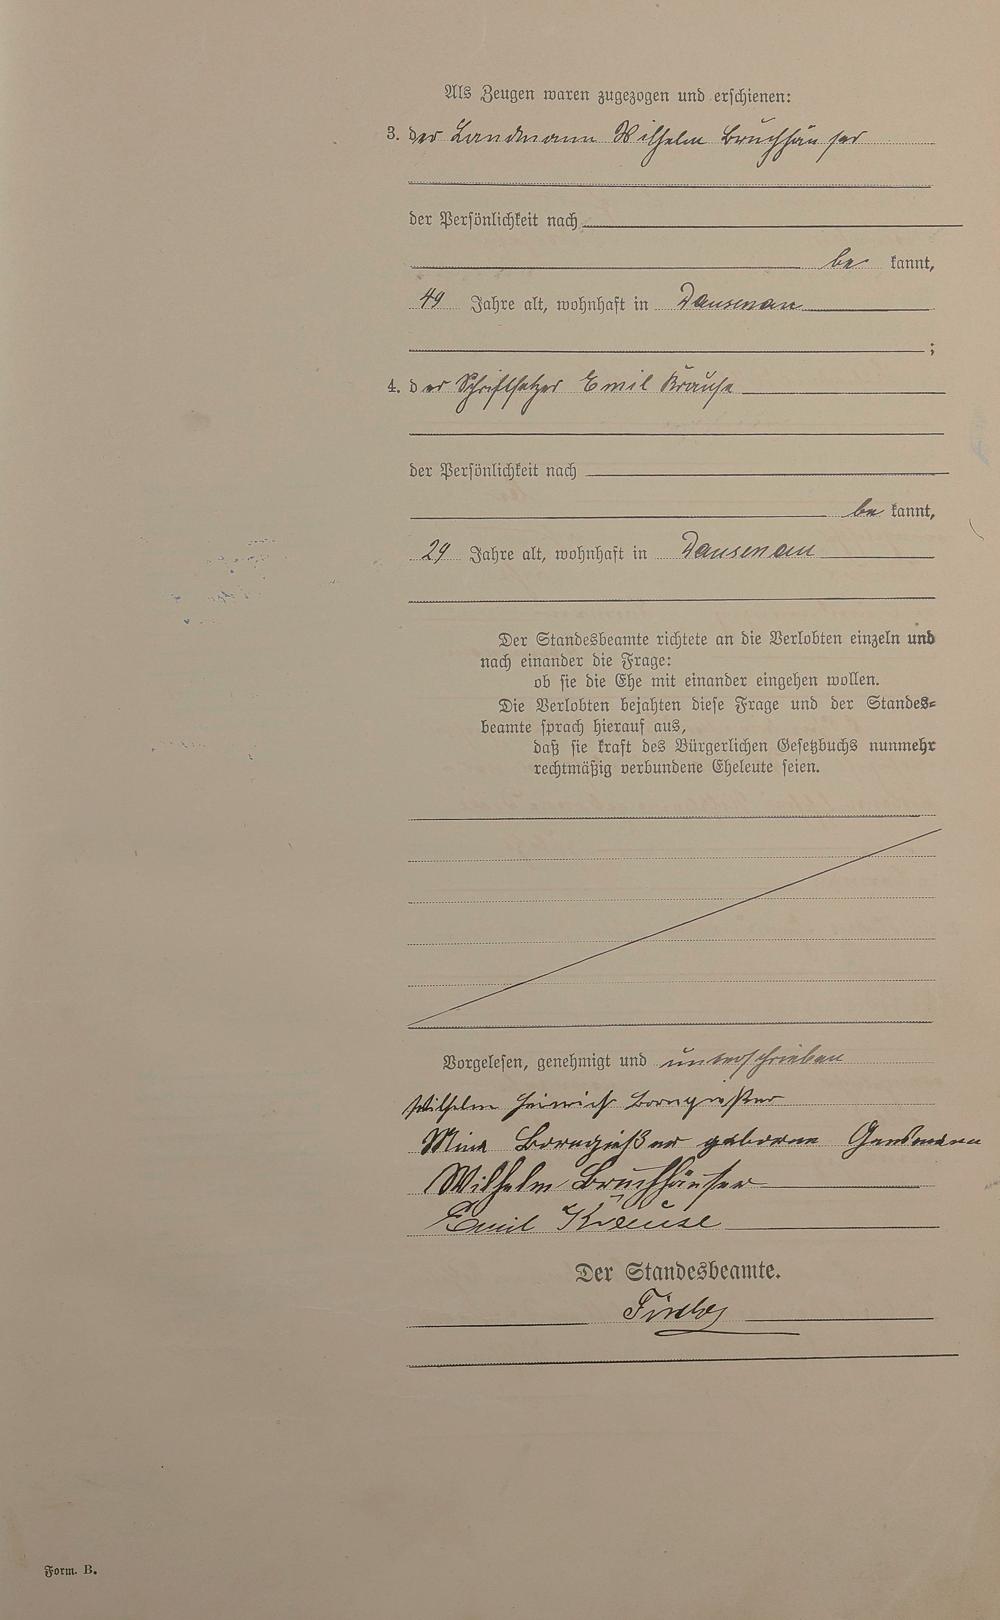 Als Zeugen waren zugezogen und erschienen:
3. der Landmann Wilhelm Bruchhäuser
der Persönlichkeit nach
be kannt,
49 Jahre alt, wohnhaft in Dausenau
;
4. der Schriftsetzer Emil Krause
der Persönlichkeit nach
be kannt,
29 Jahre alt, wohnhaft in Dausenau
Der Standesbeamte richtete an die Verlobten einzeln und
nach einander die Frage:
ob sie die Ehe mit einander eingehen wollen.
Die Verlobten bejahten diese Frage und der Standes=
beamte sprach hierauf aus,
daß sie kraft des Bürgerlichen Gesetzbuchs nunmehr
rechtmäßig verbundene Eheleute seien.
Vorgelesen, genehmigt und unterschrieben
Wilhelm Heinrich Borngießer
Mina Borngießer geborne
Wilhelm Bruchhäuser
Emil Krause
Der Standesbeamte.
Form. B.